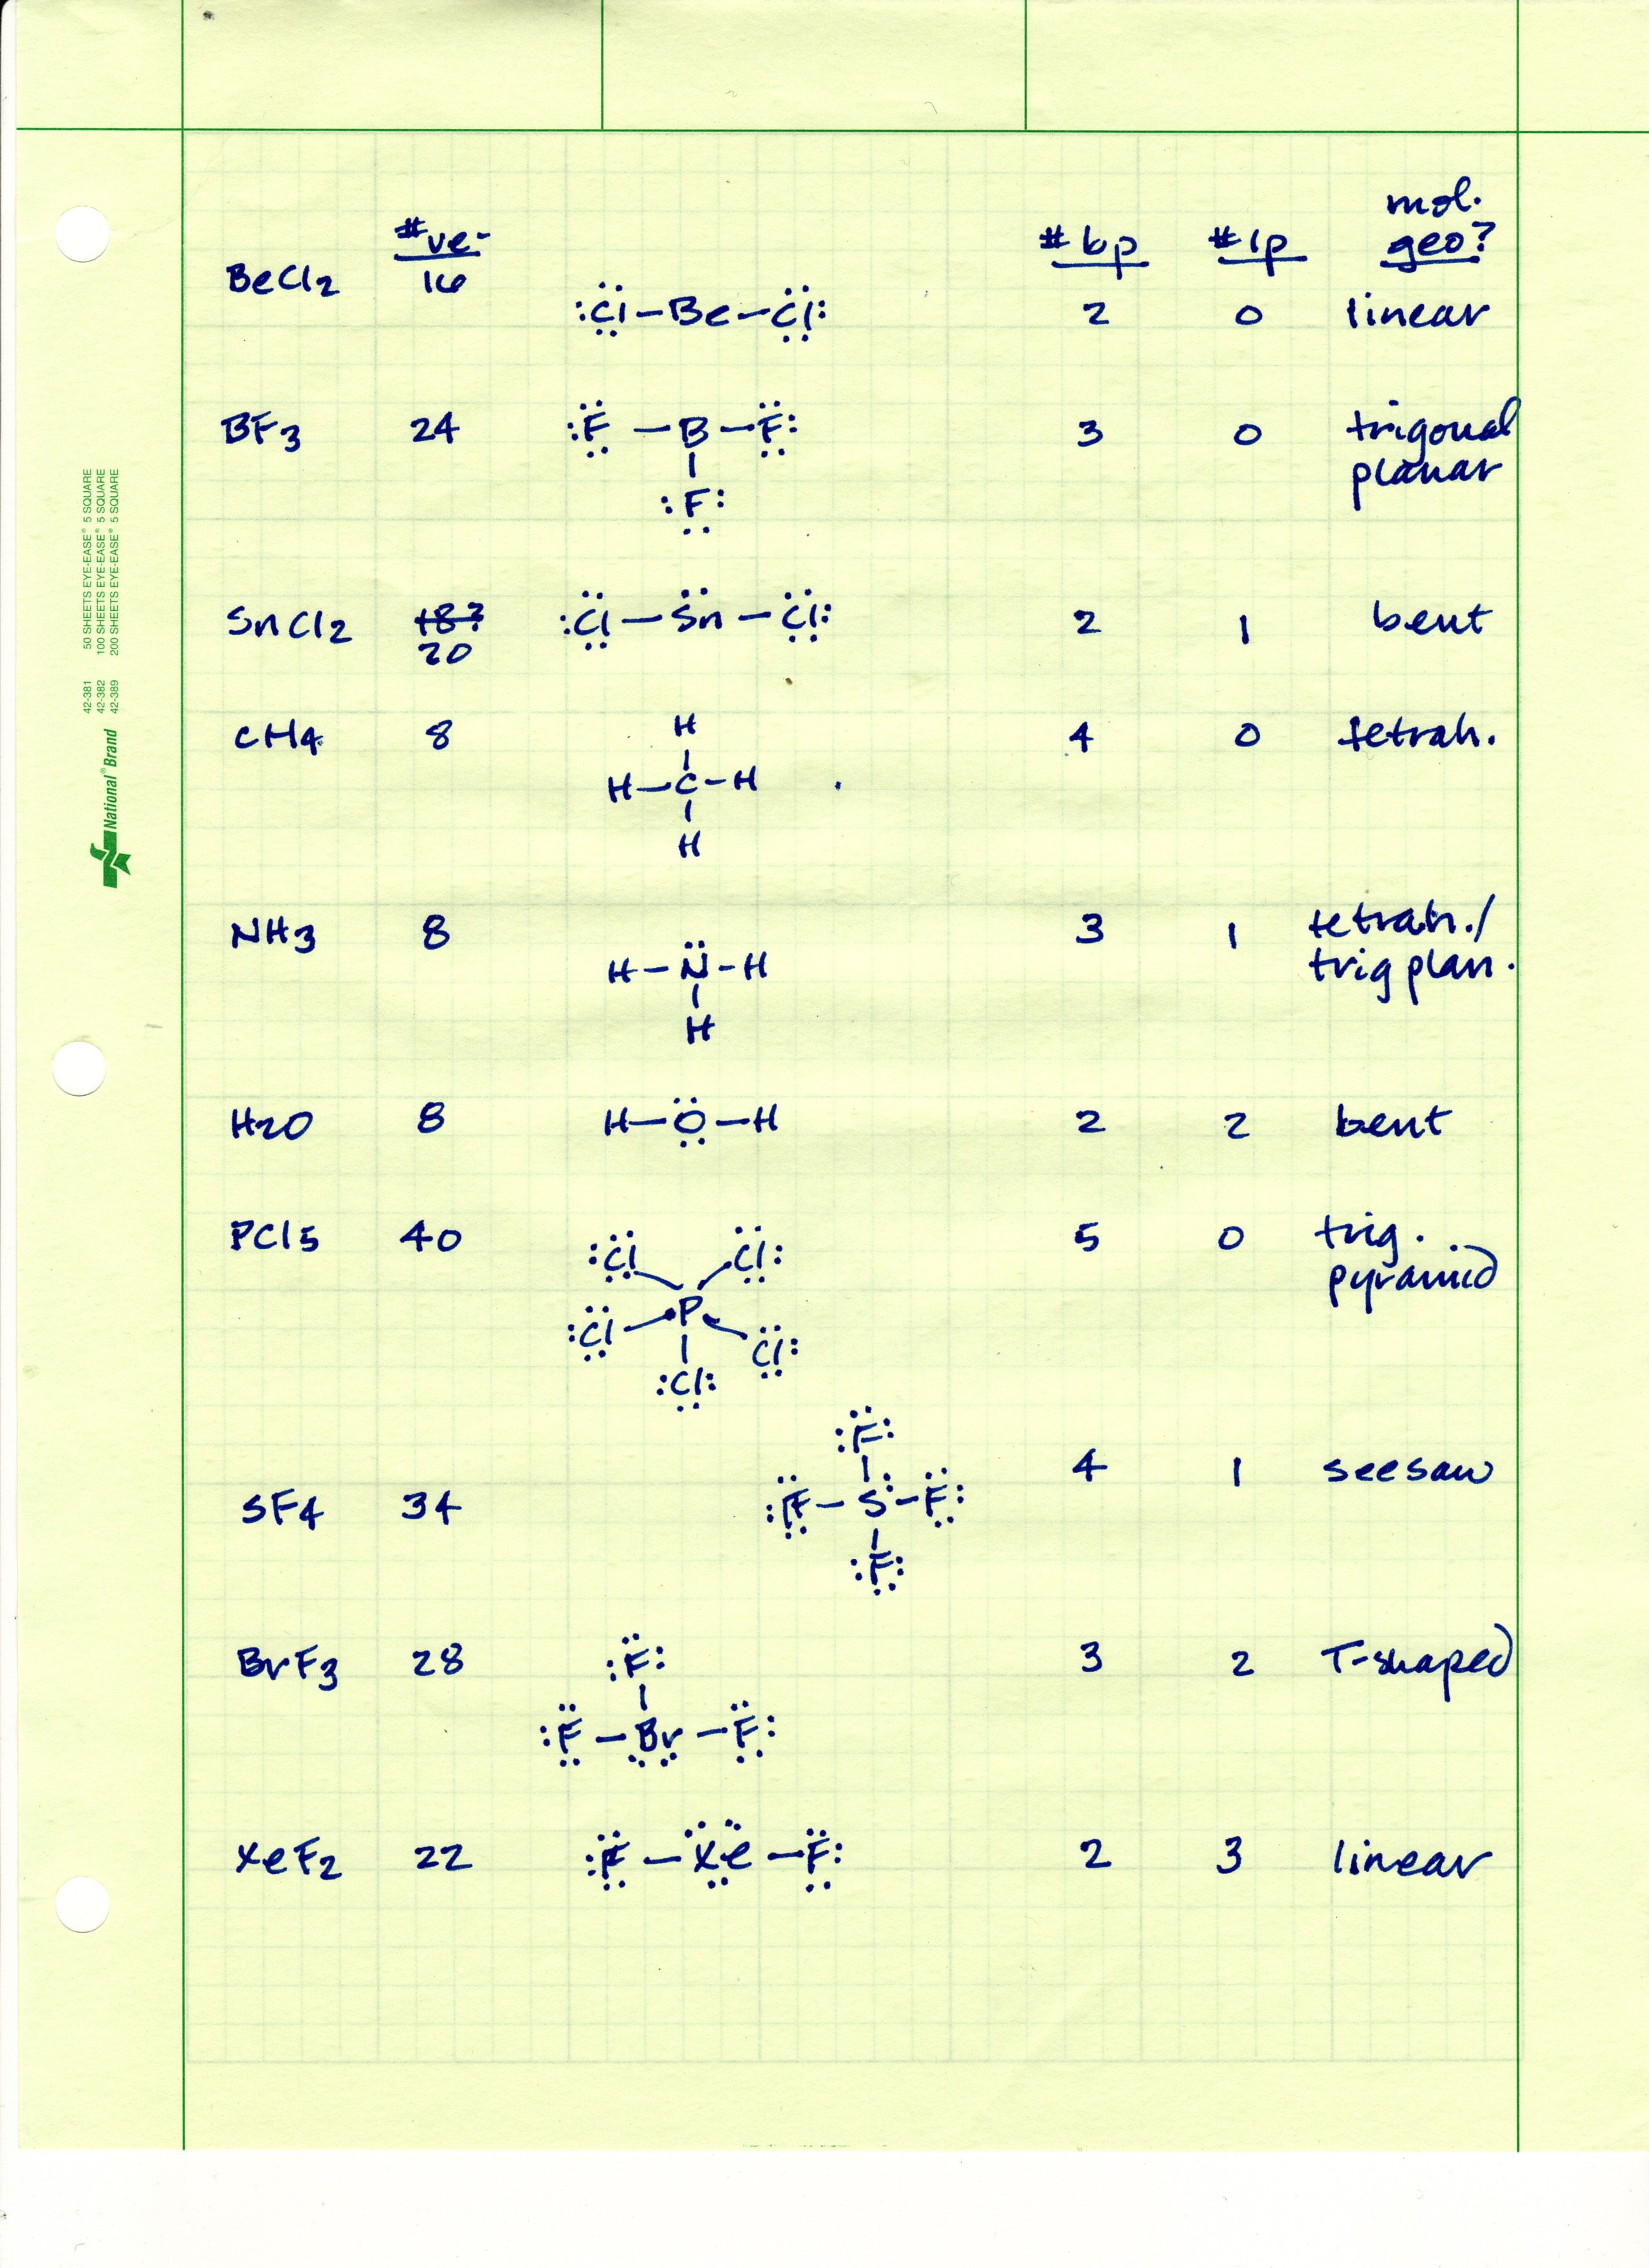 #ve- #bp #lp mol. geo?
BeCl2 16 :Cl-Be-Cl: 2 0 linear
BF3 24 :F-B-F: 3 0 trigonal
planar
:F:
SnCl2 18? :Cl-Sn-Cl: 2 1 bent
20
H
CH4 8 H-C-H 4 0 tetrah.
H
NH3 8 H-N-H 3 1 tetrah./
trig plan.
H
H2O 8 H-O-H 2 2 bent
PCl5 40 :Cl Cl: 5 0 trig.
pyramid
:Cl P Cl:
:Cl:
:F: 4 1 seesaw
SF4 34 :F-S-F:
:F:
BrF3 28 :F: 3 2 T-shaped
:F-Br-F:
XeF2 22 :F-Xe-F: 2 3 linear
42-381 50 SHEETS EYE-EASE® 5 SQUARE
42-382 100 SHEETS EYE-EASE® 5 SQUARE
42-389 200 SHEETS EYE-EASE® 5 SQUARE
National® Brand